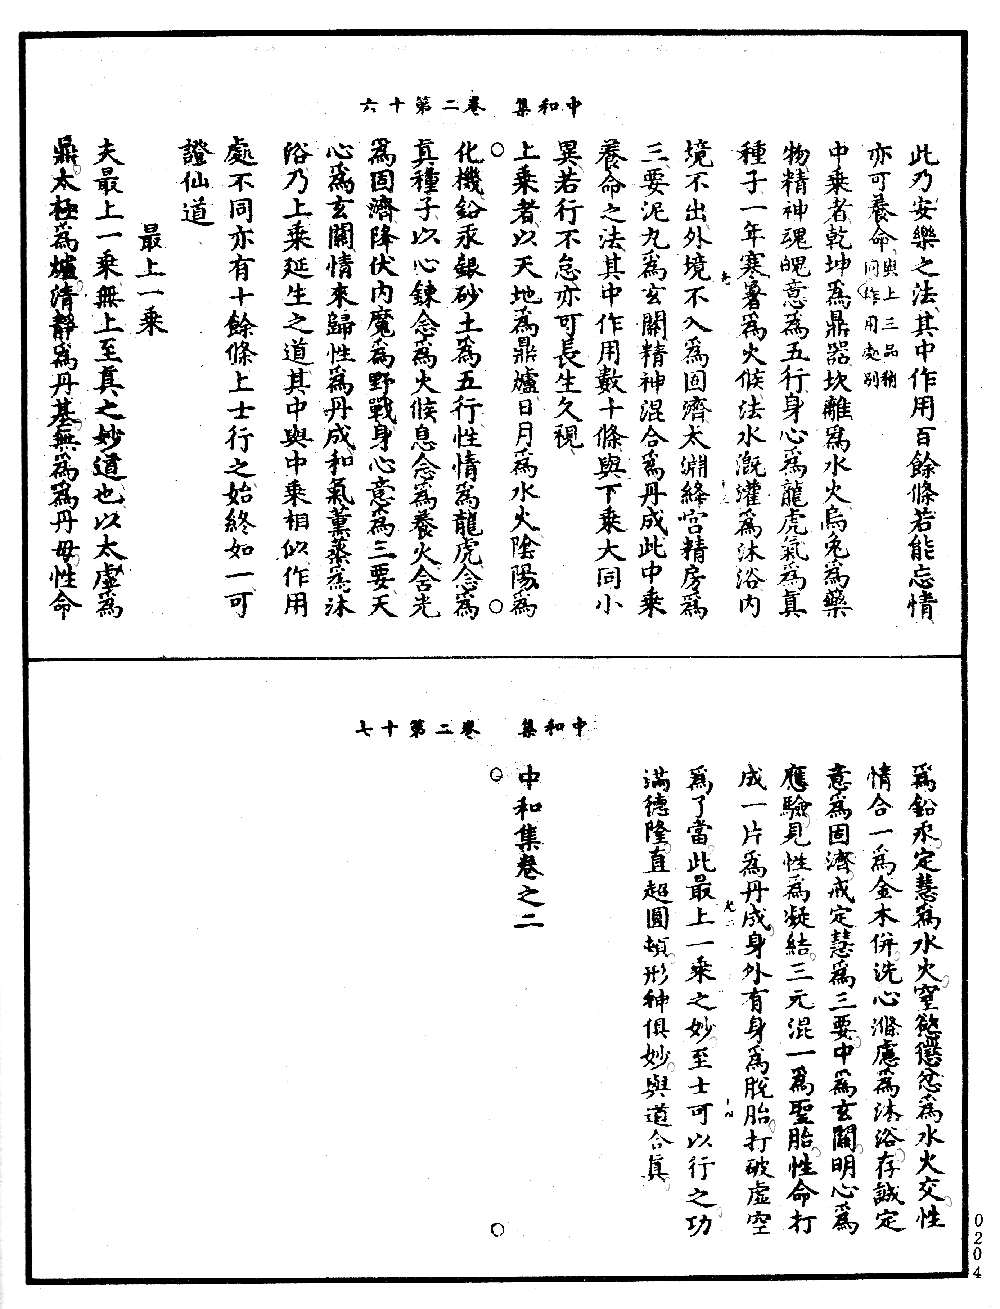 中和集 卷二第十六
此乃安樂之法其中作用百餘條若能忘情
亦可養命與上三品稍同作用處別
中乘者乾坤爲鼎器坎離爲水火烏兔爲藥
物精神魂魄意爲五行身心爲龍虎氣爲真
種子一年寒暑爲火候法水溉灌爲沐浴內
境不出外境不入爲固濟太淵絳宮精房爲
三要泥丸爲玄關精神混合爲丹成此中乘
養命之法其中作用數十條與下乘大同小
異若行不怠亦可長生久視
上乘者以天地爲鼎爐日月爲水火陰陽爲
化機鉛汞銀砂土爲五行性情爲龍虎念爲
真種子以心鍊念爲火候息念爲養火含光
爲固濟降伏內魔爲野戰身心意爲三要天
心爲玄關情來歸性爲丹成和氣薰蒸爲沐
浴乃上乘延生之道其中與中乘相似作用
處不同亦有十餘條上士行之始終如一可
證仙道
最上一乘
夫最上一乘無上至真之妙道也以太虛爲
鼎太極爲爐清靜爲丹基無爲爲丹母性命
中和集 卷二第十七
爲鉛汞定慧爲水火窒慾懲忿爲水火交性
情合一爲金木併洗心滌慮爲沐浴存誠定
意爲固濟戒定慧爲三要中爲玄關明心爲
應驗見性爲凝結三元混一爲聖胎性命打
成一片爲丹成身外有身爲脫胎打破虛空
爲了當此最上一乘之妙至士可以行之功
滿德隆直超圓頓形神俱妙與道合真
中和集卷之二
0204